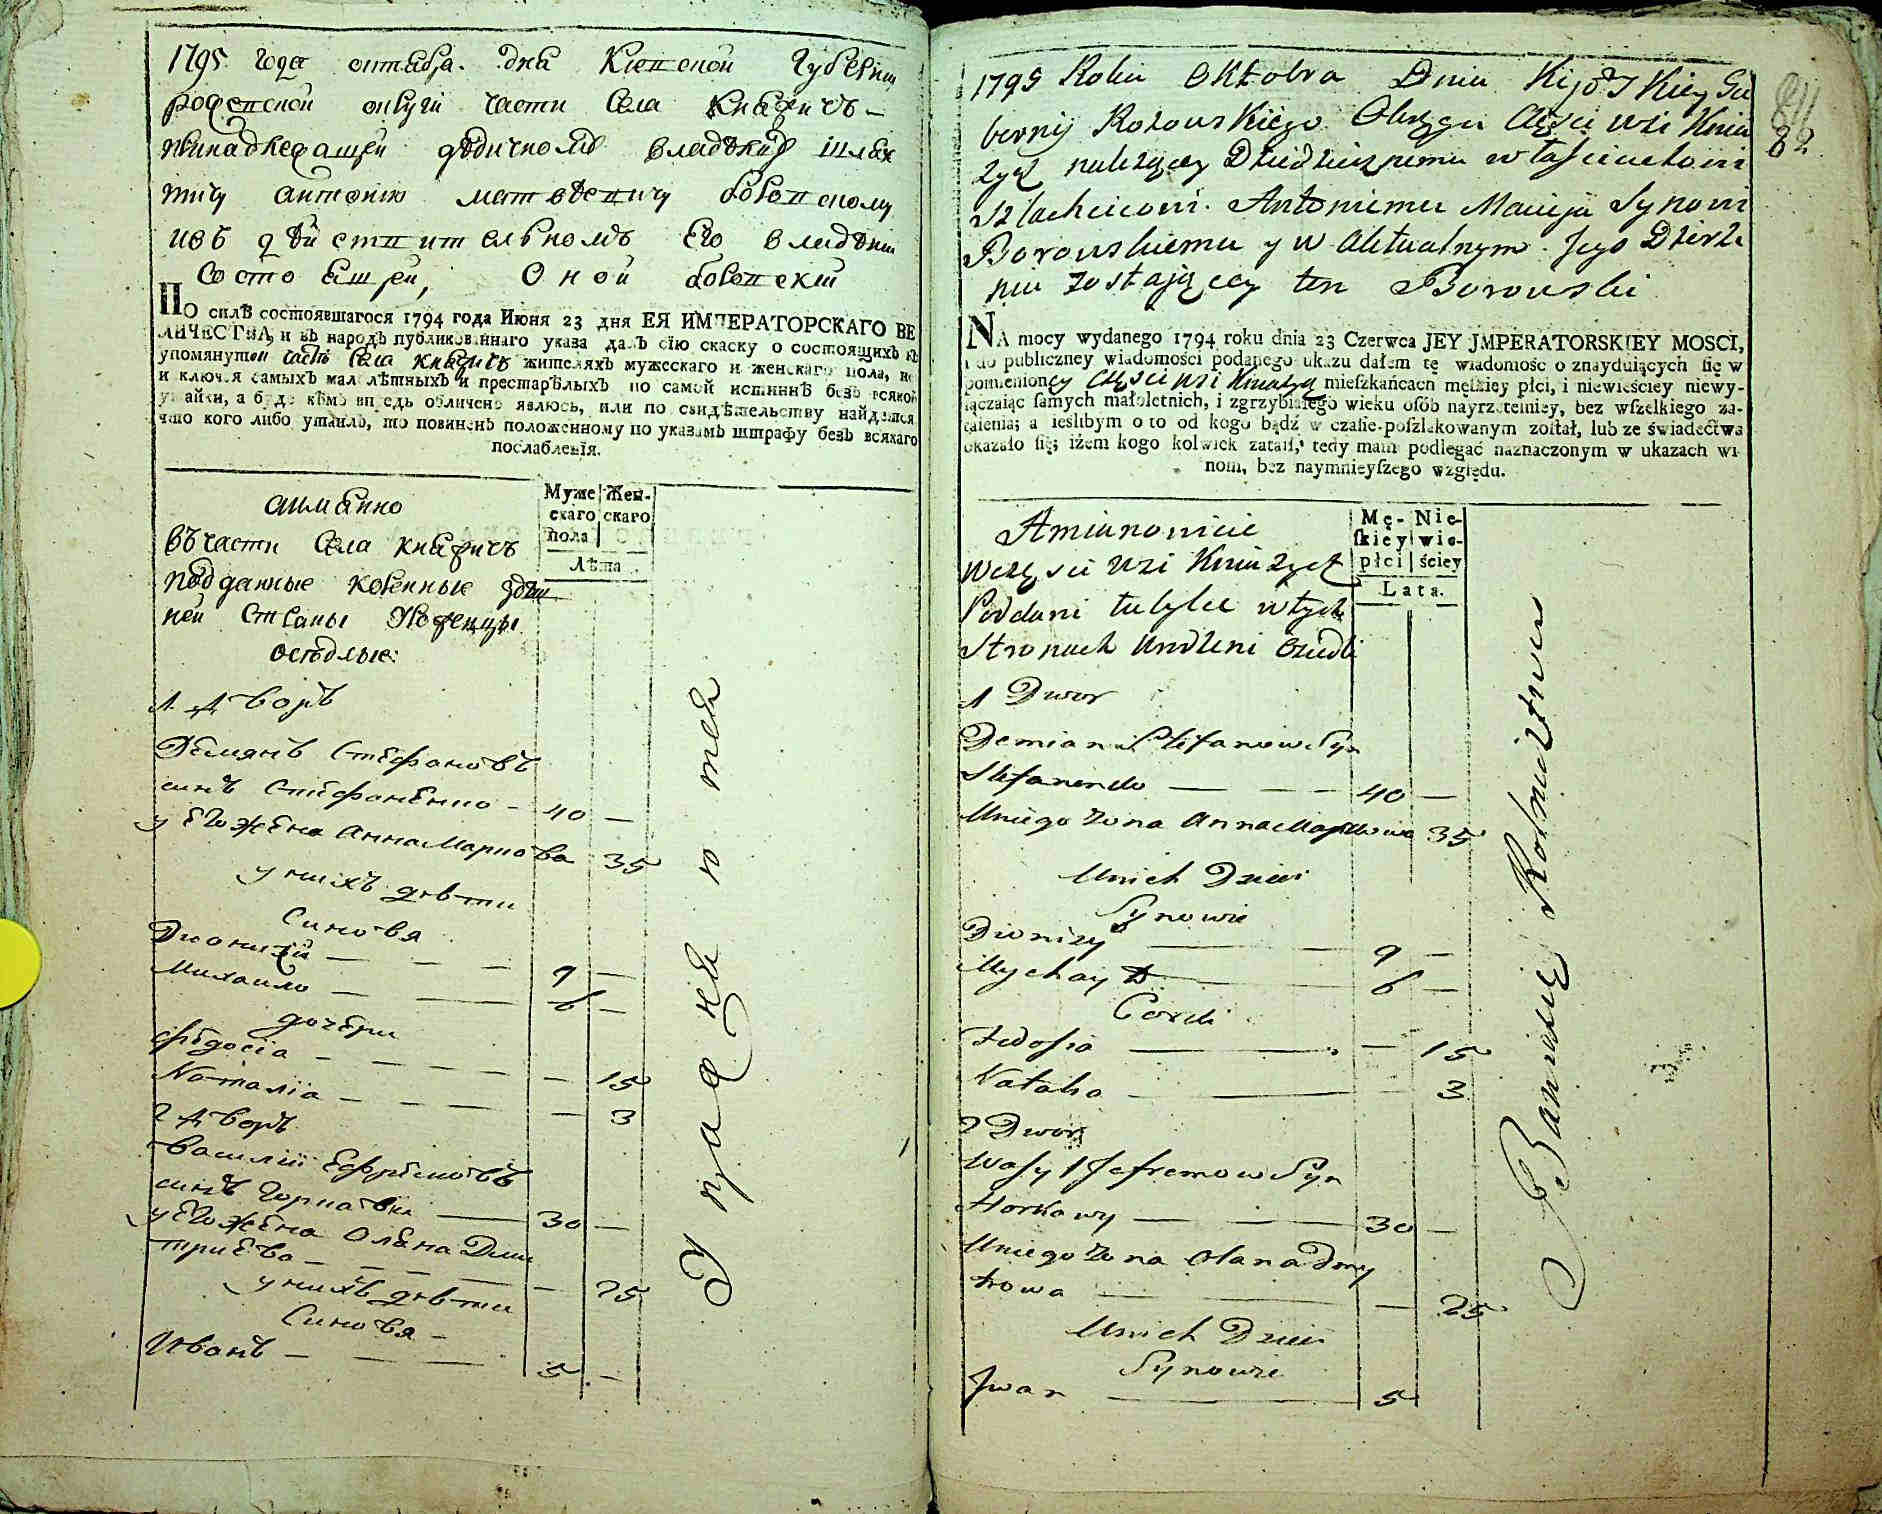 1795 года октября. дня Киевской Губернии
ровенской округи части Села Княжичъ
принадлежащей дѣдичному владѣлцу шлях
тичу антонию матвѣевичу боровскому
и въ дѣйствителномъ Его владѣнии
Состоящей, Оной боровский
ПО силѣ состоявшагося 1794 года Июня 23 дня ЕЯ ИМПЕРАТОРСКАГО ВЕ
ЛИЧЕСТВА, и въ народъ публикованнаго указа далъ сїю скаску о состоящихъ въ
упомянутой части Села Княжичъ жителяхъ мужескаго и женскаго пола, не
и ключая самыхъ малолѣтныхъ и престарѣлыхъ по самой истиннѣ безъ всякой
утайки, а буде кѣмъ впредь обличенъ явлюсь, или по свидѣтельству найдется
что кого либо утаилъ, то повиненъ положенному по указамъ штрафу безъ всякаго
послабленїя.
аимянно
въ части Села Княжичъ
подданные коренные здѣш
ней Страны Уроженцы
осѣдлые:
Муже скаго пола
Жен- скаго
Лѣта
1 дворъ
Демянъ Стефановъ
синъ Стефаненко — 40 —
у Его жена Анна Маркова 35
у нихъ дѣти
Синовя
Дионизїй — — — 9 —
Михаило — — 6 —
дочери
Федосїа — — — — 15
Наталїа — — — — 3
2 дворъ
Василий Ефремовъ
синъ Горкавий — 30 —
у Его жена Олена Дми
триева — — — — 25
у нихъ дѣти
Синовя
Иванъ — — — 5 —
Уражѣнются
82
1795 Roku Oktobra Dnia Kijowskiey Gu
bernij Rozowskiego Okręgu Części wsi Knia
życz należącey Dziedzicznemu właścicielowi
Szlachcicowi. Antoniemu Macieja Synowi
Borowskiemu y w Aktualnym Jego Dzierże
niu zostającey ten Borowski
NA mocy wydanego 1794 roku dnia 23 Czerwca JEY JMPERATORSKIEY MOSCI,
i do publiczney wiadomości podanego ukazu dałem tę wiadomość o znayduiących się w
pomienioney Części wsi Kniażycz mieſzkańcach męzkiey płci, i niewieściey niewy-
łączaiąc ſamych małoletnich, i zgrzybiałego wieku oſób nayrzetelniey, bez wſzelkiego za-
taienia; a ieślibym o to od kogo bądź w czaſie poſzlakowanym zoſtał, lub ze świadectwa
okazało ſię, iżem kogo kolwiek zataił, tedy mam podlegać naznaczonym w ukazach wi
nom, bez naymnieyſzego względu.
Amianowicie
W części wsi Kniażycz
Poddani tubylce w tych
Stronach urodzeni Osiedli
Mę- ſkiey płci
Nie- wie- ściey
Lata.
1 Dwor
Demian Stefanow Syn
Stefanenko — — — 40 —
U niego żona Anna Markowa 35
U nich Dzieci
Synowie
Dionizy — — 9 —
Mychayło — 6 —
Corki
Fedosia — — 15
Natalia — 3
2 Dwor
Wasyl Jefremow Syn
Horkawy — — — 30 —
U niego żona Olana Dmy
trowa — — 25
U nich Dzieci
Synowie
Jwan — 5